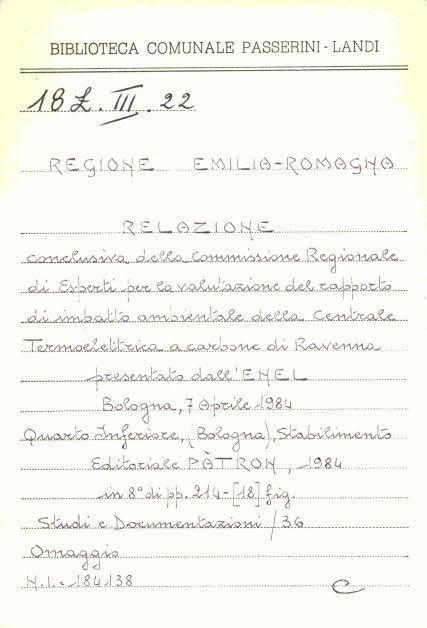 BIBLIOTECA COMUNALE PASSERINI - LANDI
18 Z. III. 22
REGIONE EMILIA-ROMAGNA
RELAZIONE
conclusiva della Commissione Regionale
di Esperti per la valutazione del rapporto
di impatto ambientale della Centrale
Termoelettrica a carbone di Ravenna
presentato dall'ENEL
Bologna, 7 Aprile 1984
Quarto Inferiore, (Bologna), Stabilimento
Editoriale PÀTRON, 1984
in 8° di pp. 214-[18] fig.
Studi e Documentazioni / 36
Omaggio
N.I.: 184138 C